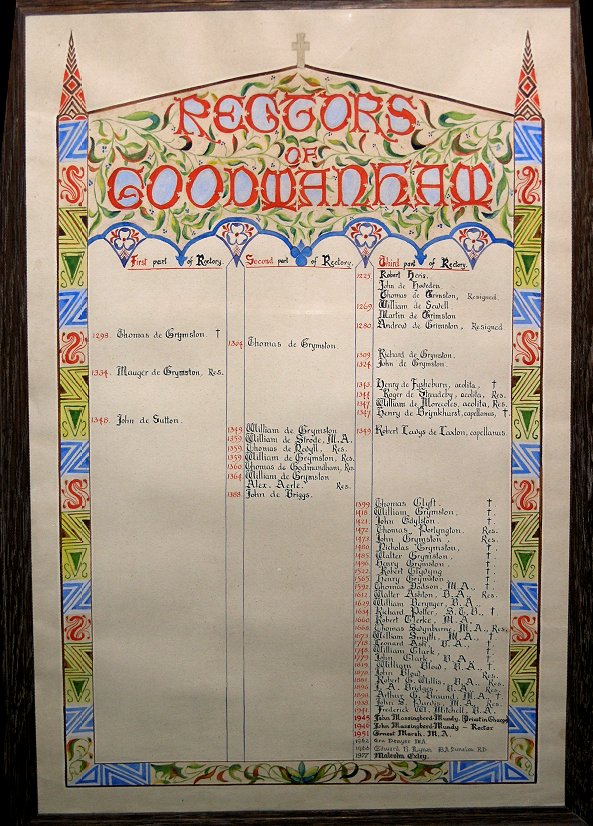 RECTORS
OF
GOODMANHAM
First part of Rectory.
1298. Thomas de Grymston. †
1334. Mauger de Grymston, Res.
1348. John de Sutton.
Second part of Rectory.
1304 Thomas de Grymston.
1349 William de Grymston
1359 William de Strode, M.A.
1359 Thomas de Res.
1359 William de Grymston, Res.
1360 Thomas de Godmundham, Res.
1364 William de Grymston
Alex. Aerle. Res.
1388 John de Briggs.
Third part of Rectory.
1225 Robert Heris.
John de Hoveden
Thomas de Grimston, Resigned.
1269 William de Sewell
Martin de Grimston
1280 Andrew de Grimston, Resigned
1309 Richard de Grymston,
1324 John de Grymston.
1343 Henry de Fysheburn, acolita, †
1344 Roger de acolita, Res.
1347 William de acolita, Res.
1347 Henry de Brynkhurst, capellanus, †.
1349 Robert Lewys de Laxton, capellanus.
1399 Thomas Clyft. †.
1418 William Grymston, †.
1421 John †.
1472 Thomas Portyngton. Res.
1473 John Grymston, Res.
1480 Nicholas Grymston, †.
1485 Walter Grymston, †.
1496 Henry Grymston. †.
1522 Robert †.
1565 Henry Grymston. †.
1592 Thomas Dodson, M.A., †.
1612 Walter Ashton, B.A., Res.
1629 William B.A.
1634 Richard Potter, S.T.B., †.
1666 Robert Clerke, M.A.
1668 Thomas Swynburne, M.A., Res.
1673 William Smyth, M.A., †
1718 Leonard Ash, B.A., †
1748 William Clark, †
1779 John Clark, B.A. †
1819 William Blow, B.A., †.
John Blow Res.
Robert G. Willis, B.A., Res.
J. A. Bridges, B.A., Res.
Arthur C. Braund, M.A., †
1938 John S. Purvis, M.A., Res.
1941 Frederick W. Mitchell, B.A.
1945 John Massingberd-Mundy, (Priest in Charge)
1949 John Massingberd-Mundy - Rector
1951 Ernest Marsh, M.A.
M.A.
1966 Edward B. B.A. R.D.
1977 Malcolm Exley.